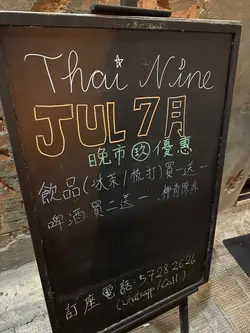 Thai Nine
JUL 7月
晚市 玖 優惠
飲品(冰茶/梳打)買一送一
啤酒買二送一
訂座電話:5728 2626
(Whatsapp/Call)